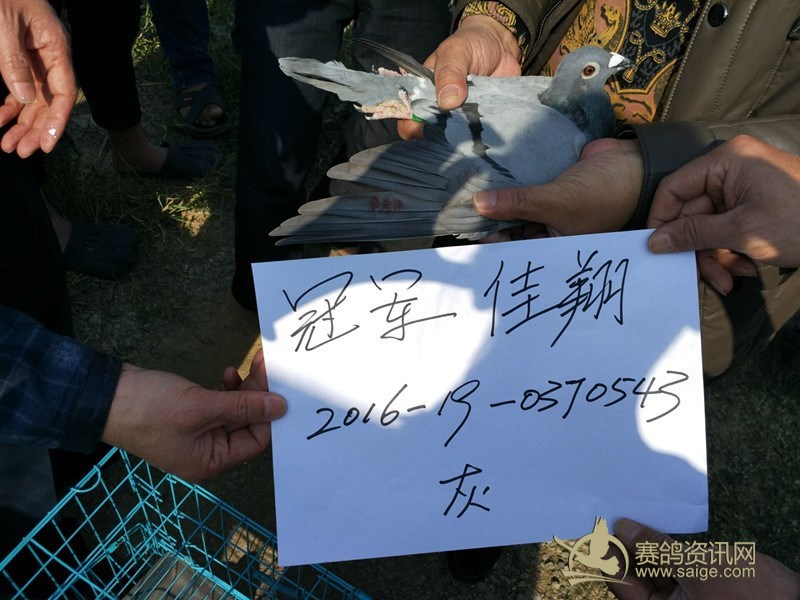 冠军 佳翔
2016-19-0370543
灰
赛鸽资讯网
www.saige.com